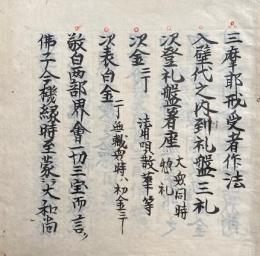 三摩耶戒受者作法
入壁代之内到礼盤三礼
次登礼盤着座 大衆同時惣礼
次金二丁 法用唄散華等
次表白金一丁
敬白両部界會一切三宝而言
佛子今機縁時至蒙大和尚